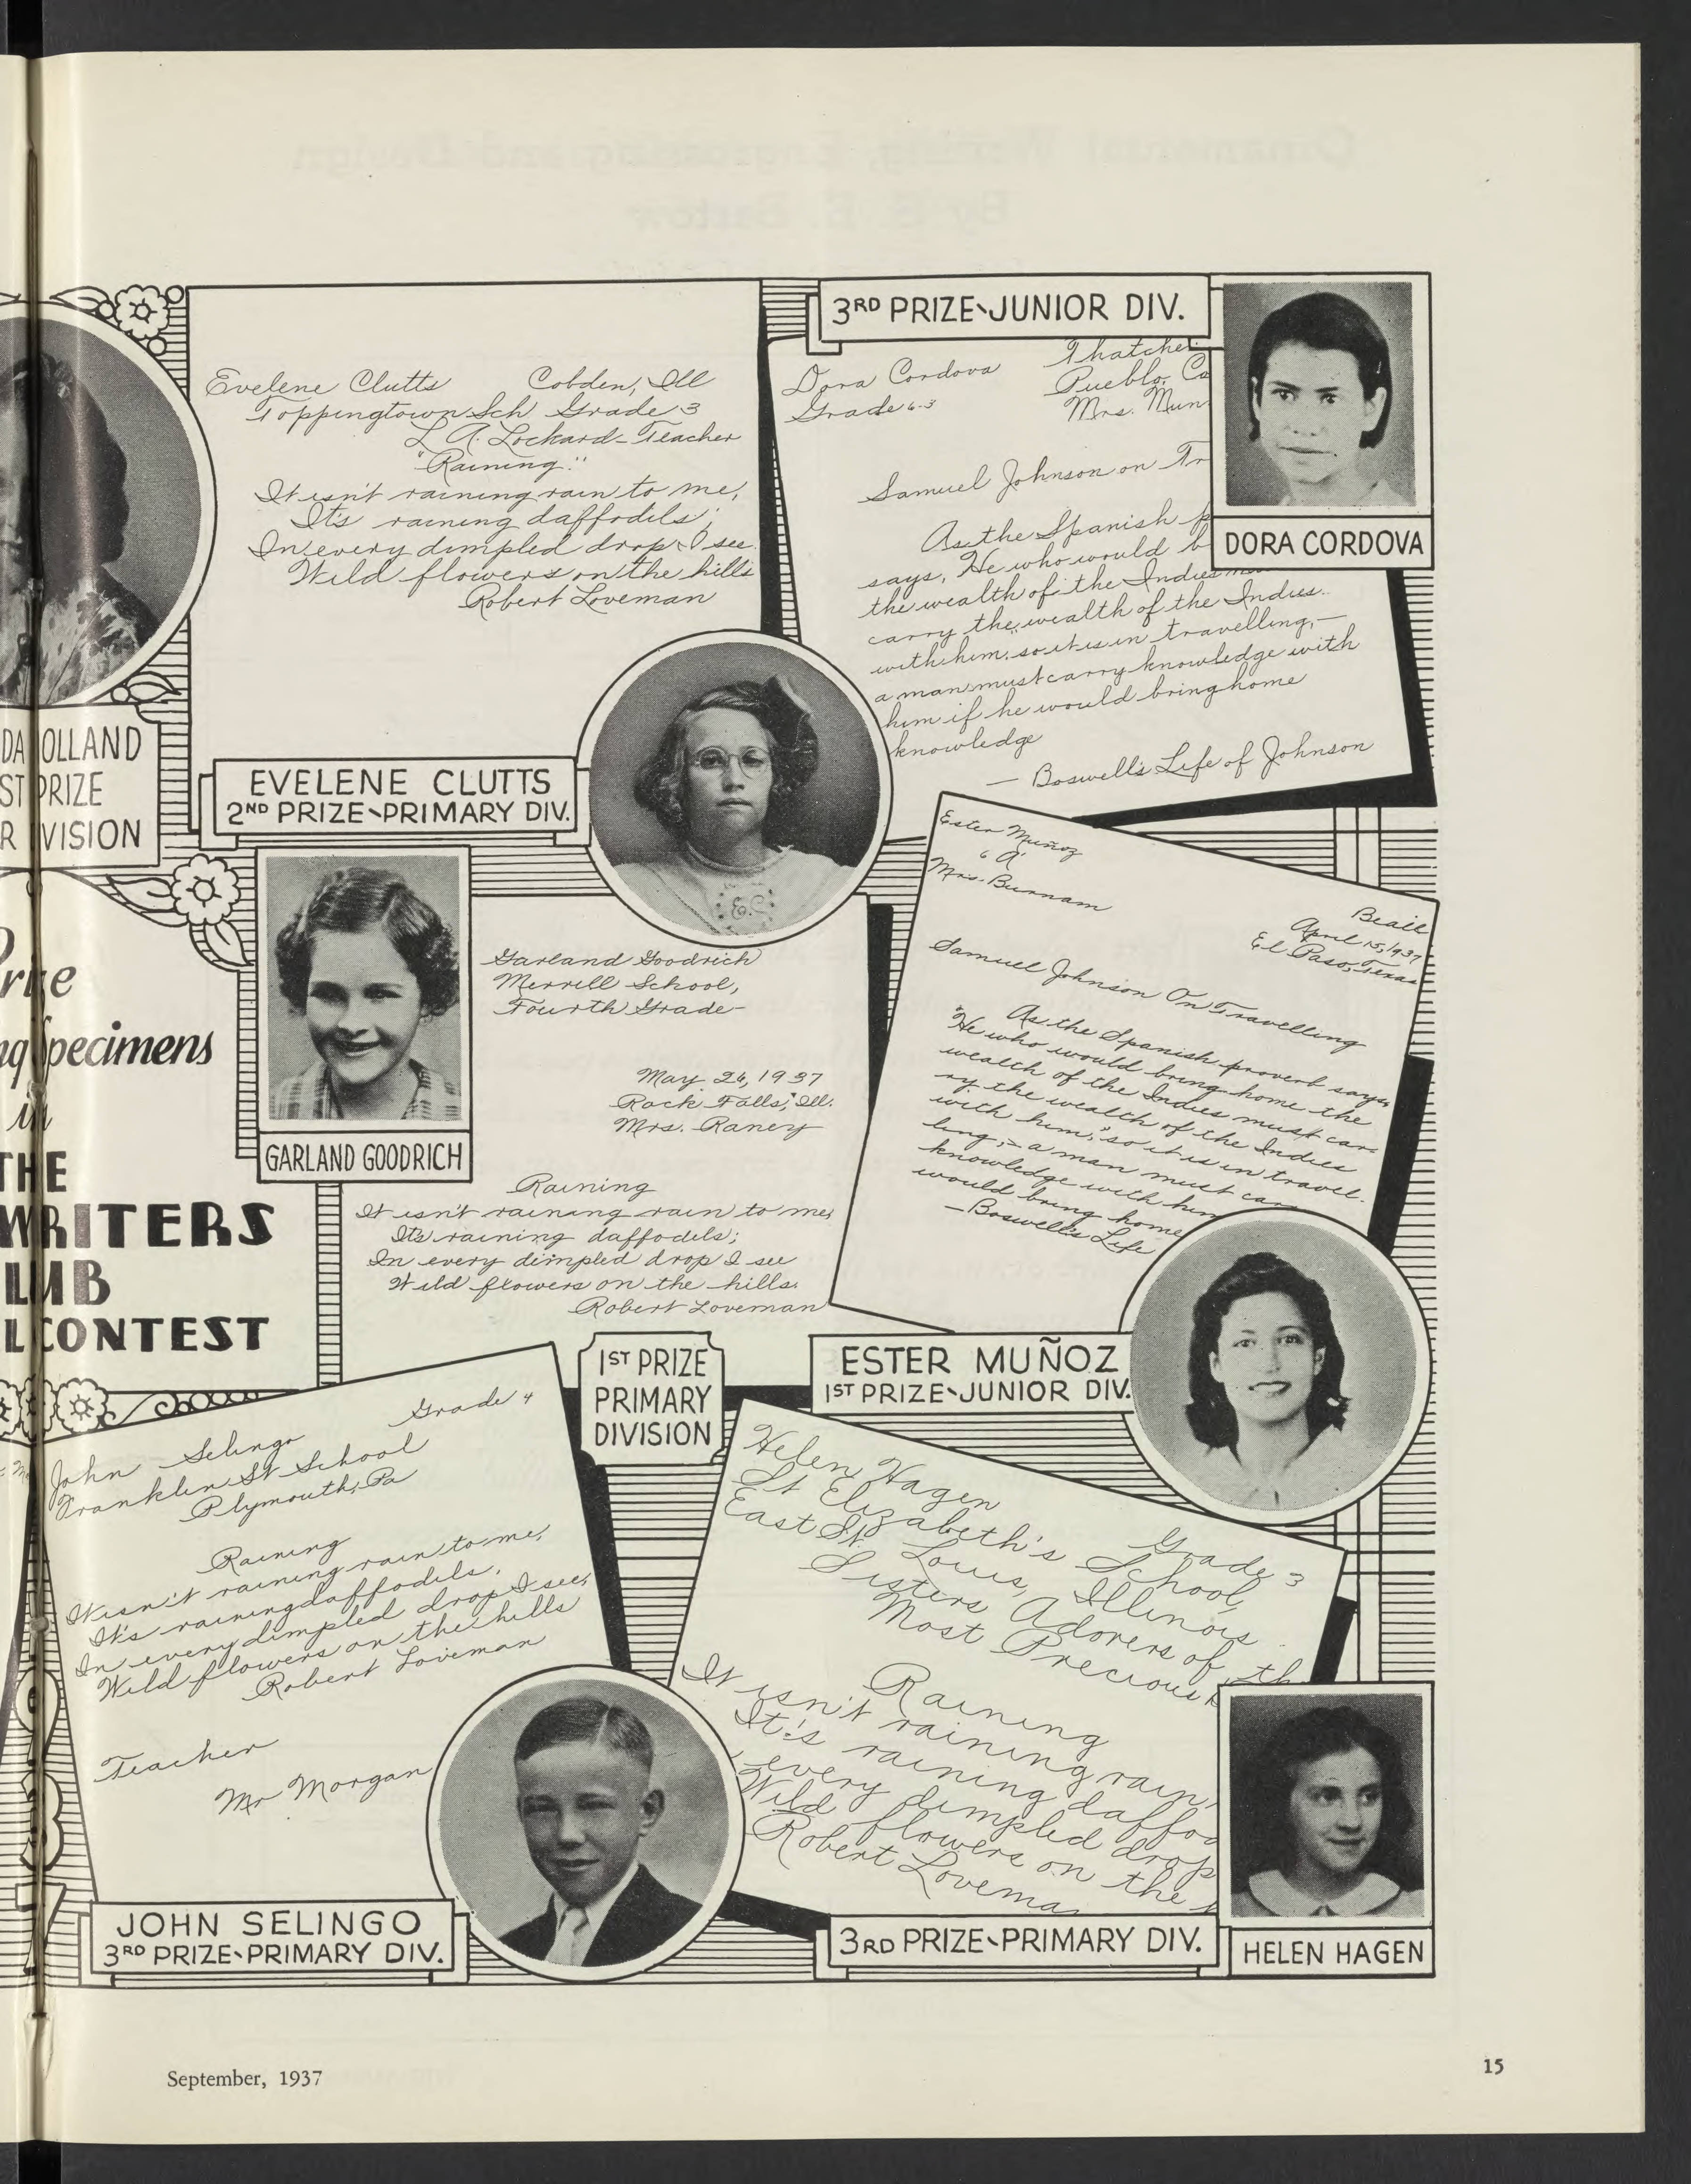 DA OLLAND
ST PRIZE
R VISION
pecimens
in
THE
WRITERS
LUB
L CONTEST
Evelene Clutts Cobden, Ill
Toppingtown Sch Grade 3
L A. Lockard - Teacher
"Raining."
It isn't raining rain to me,
It's raining daffodils;
In every dimpled drop I see
Wild flowers on the hills
Robert Loveman
EVELENE CLUTTS
2ND PRIZE-PRIMARY DIV.
E.C.
3RD PRIZE-JUNIOR DIV.
Dora Cordova Thatcher
Grade 6-3 Pueblo, Co
Mrs. Mun
Samuel Johnson on Tr
As the Spanish p
says, He who would b
the wealth of the Indies m
carry the wealth of the Indies
with him," so it is in travelling,—
a man must carry knowledge with
him if he would bring home
knowledge
— Boswell's Life of Johnson
DORA CORDOVA
Garland Goodrich
Merrill School,
Fourth Grade
May 26, 1937
Rock Falls, Ill.
Mrs. Raney
Raining
It isn't raining rain to me,
It's raining daffodils;
In every dimpled drop I see
Wild flowers on the hills.
Robert Loveman
GARLAND GOODRICH
1ST PRIZE
PRIMARY
DIVISION
Ester Muñoz
6 A
Mrs. Burnam
Beall
April 15, 1937
El Paso, Texas
Samuel Johnson On Travelling
As the Spanish proverb says,
"He who would bring home the
wealth of the Indies must car-
ry the wealth of the Indies
with him," so it is in travel-
ling,- a man must carr
knowledge with him
would bring home
—Boswell's Life
ESTER MUÑOZ
1ST PRIZE-JUNIOR DIV.
Grade 4
John Selingo
Franklin St School
Plymouth, Pa
Raining
It isn't raining rain to me,
It's raining daffodils,
In every dimpled drop I see,
Wild flowers on the hills
Robert Loveman
Teacher
Mr Morgan
JOHN SELINGO
3RD PRIZE-PRIMARY DIV.
Helen Hagen Grade 3
St Elizabeth's School,
East St. Louis, Illinois.
Sisters Adorers of th
Most Precious
Raining
It isn't raining rain,
It's raining daffod
every dimpled drop
Wild flowers on the
Robert Lovema
3RD PRIZE-PRIMARY DIV.
HELEN HAGEN
September, 1937
15